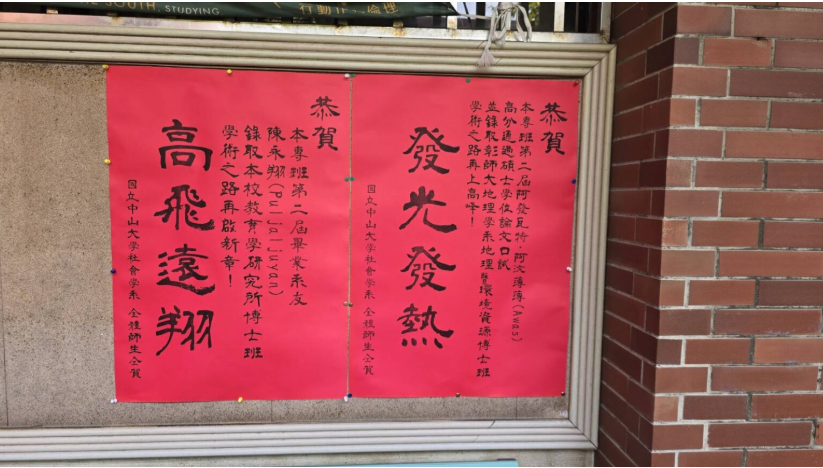 SOUTH, STUDYING
行動正
恭賀
本專班第二屆阿發瓦特．阿汶薄薄(Awas)
高分通過碩士學位論文口試
並錄取彰師大地理學系地理暨環境資源博士班
學術之路再上高峰！
發光發熱
國立中山大學社會學系 全體師生仝賀
恭賀
本專班第二屆畢業系友
陳永翔(Puljaljuyan)
錄取本校教育學研究所博士班
學術之路再啟新章！
高飛遠翔
國立中山大學社會學系 全體師生仝賀